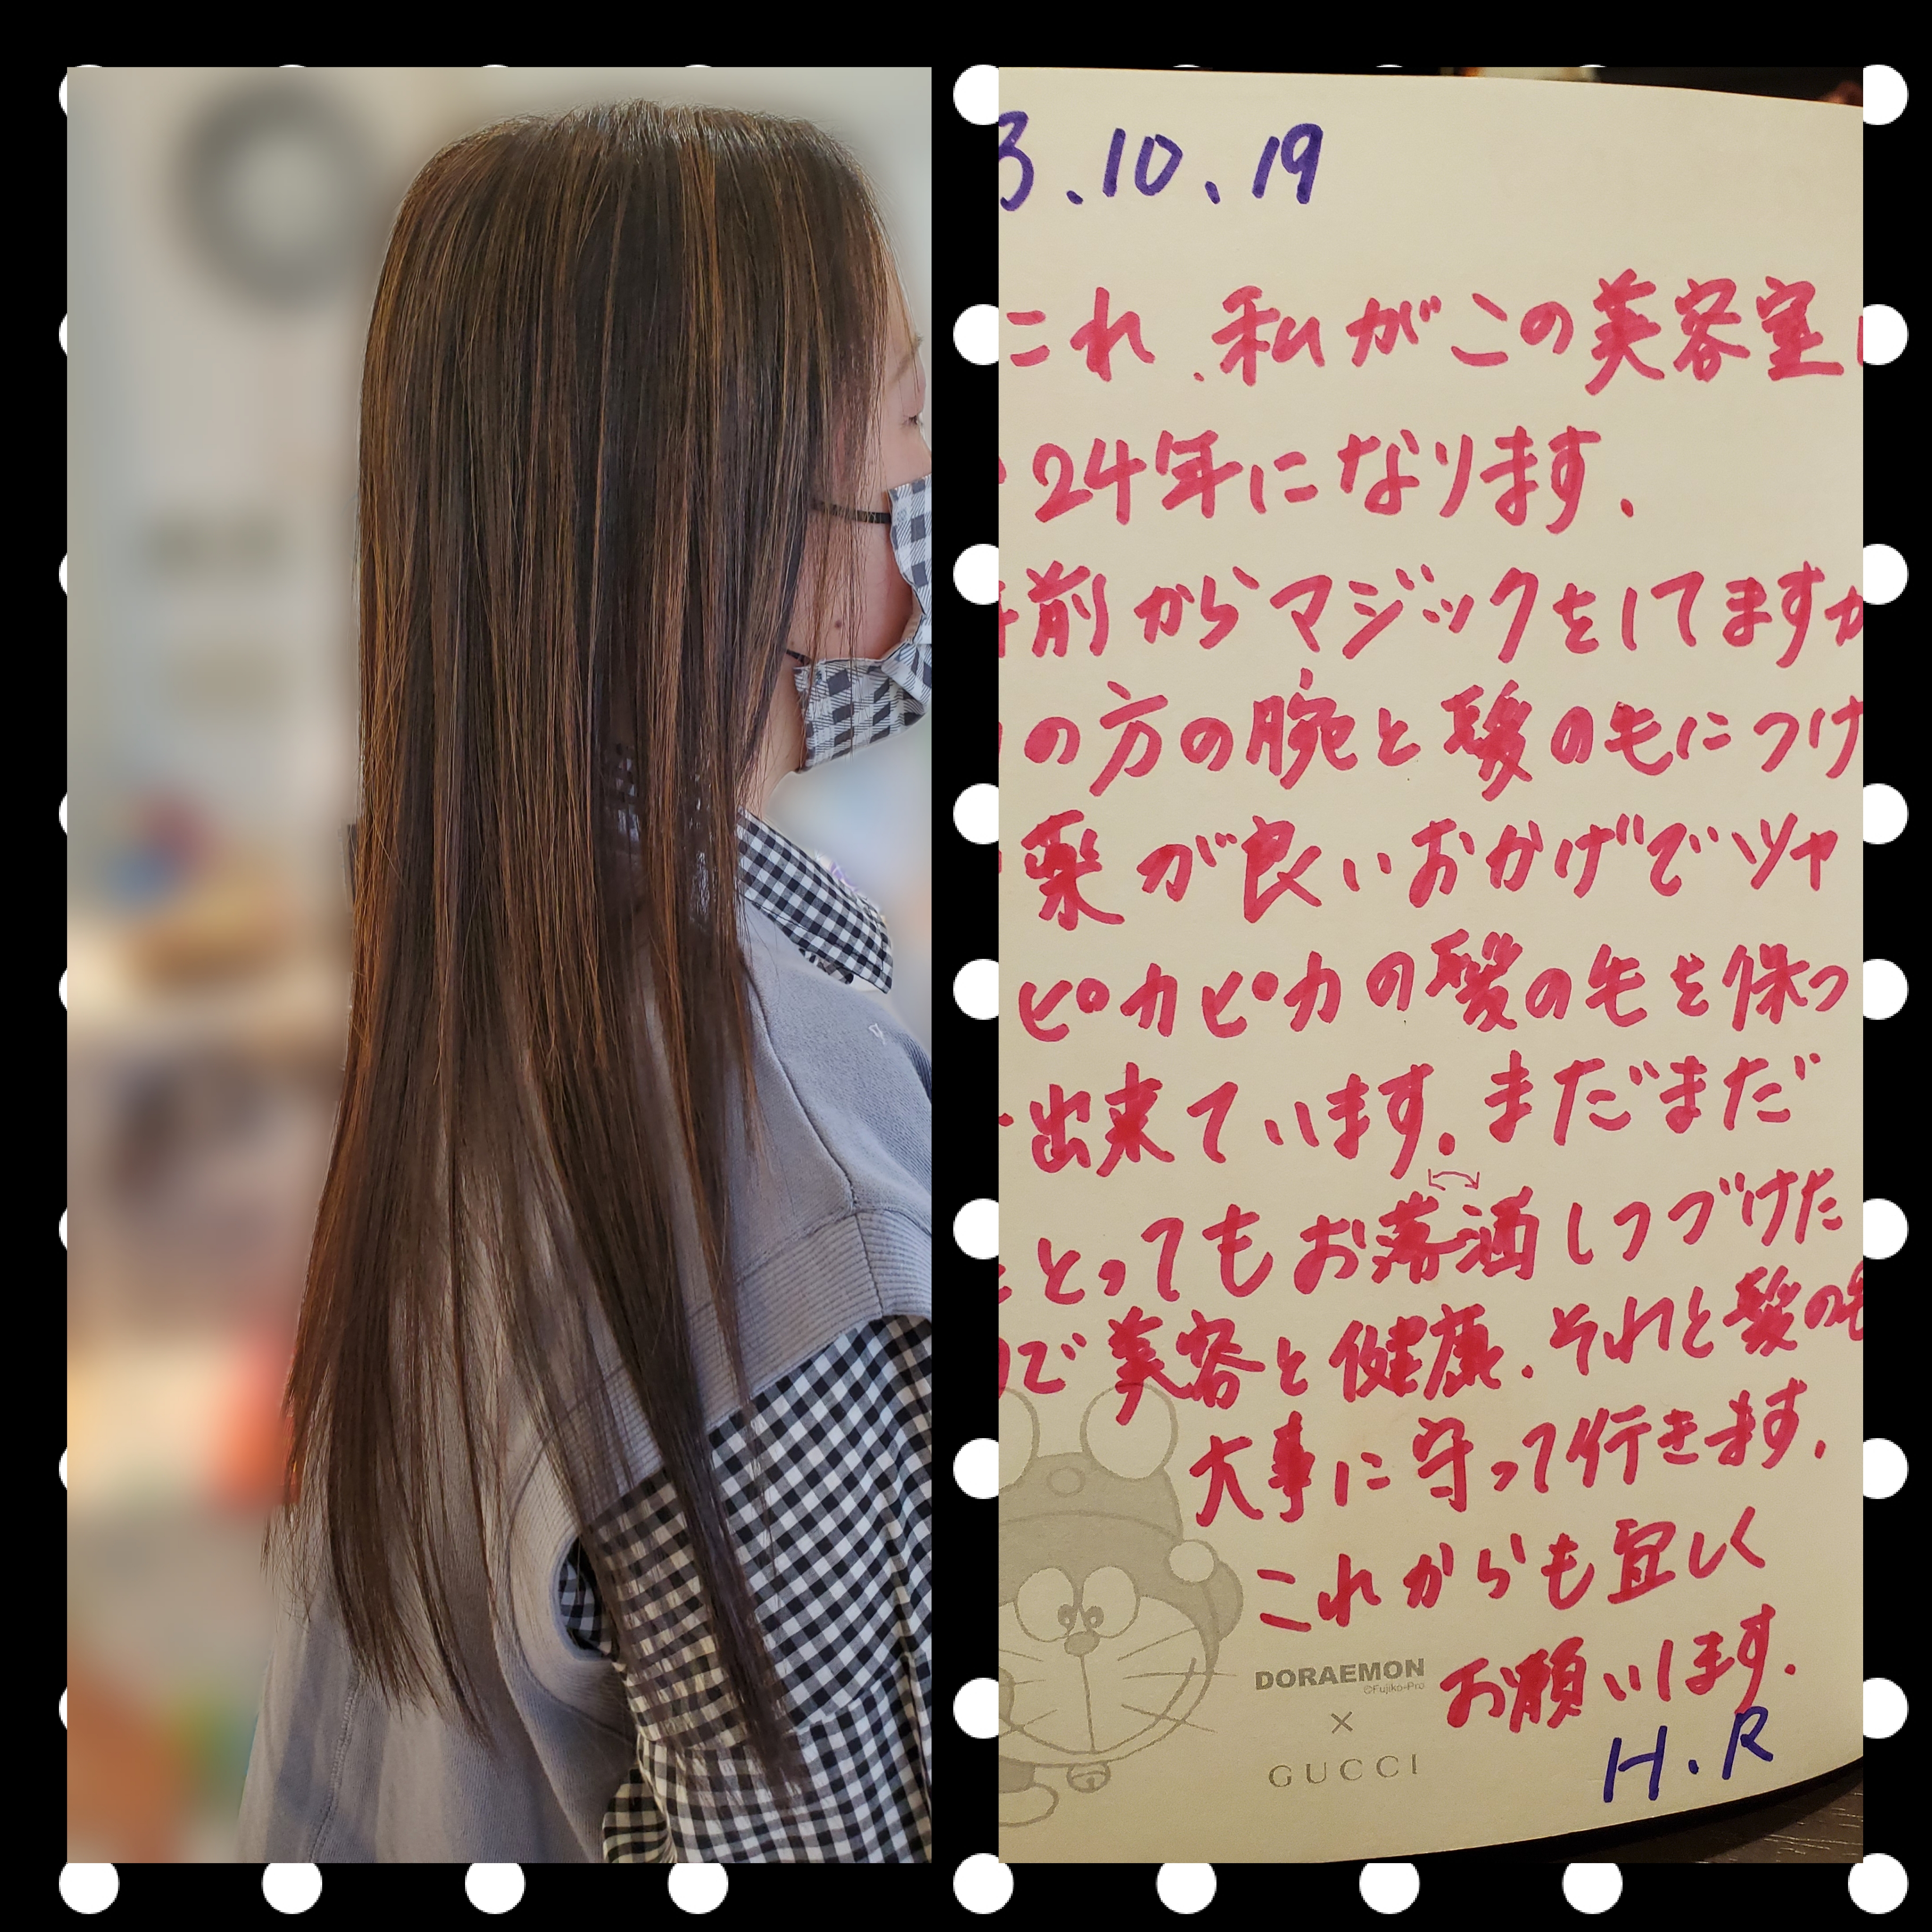 3.10.19
これ、私がこの美容室
24年になります.
前からマジックをしてますが
の方の腕と髪の毛につけ
薬が良いおかげでツヤ
ピカピカの髪の毛を保つ
出来ています.まだまだ
とってもお落洒しつづけた
で美容と健康.それと髪の毛
大事に守って行きます.
これからも宜しく
お願いします.
H.R
DORAEMON
©Fujiko-Pro
×
GUCCI